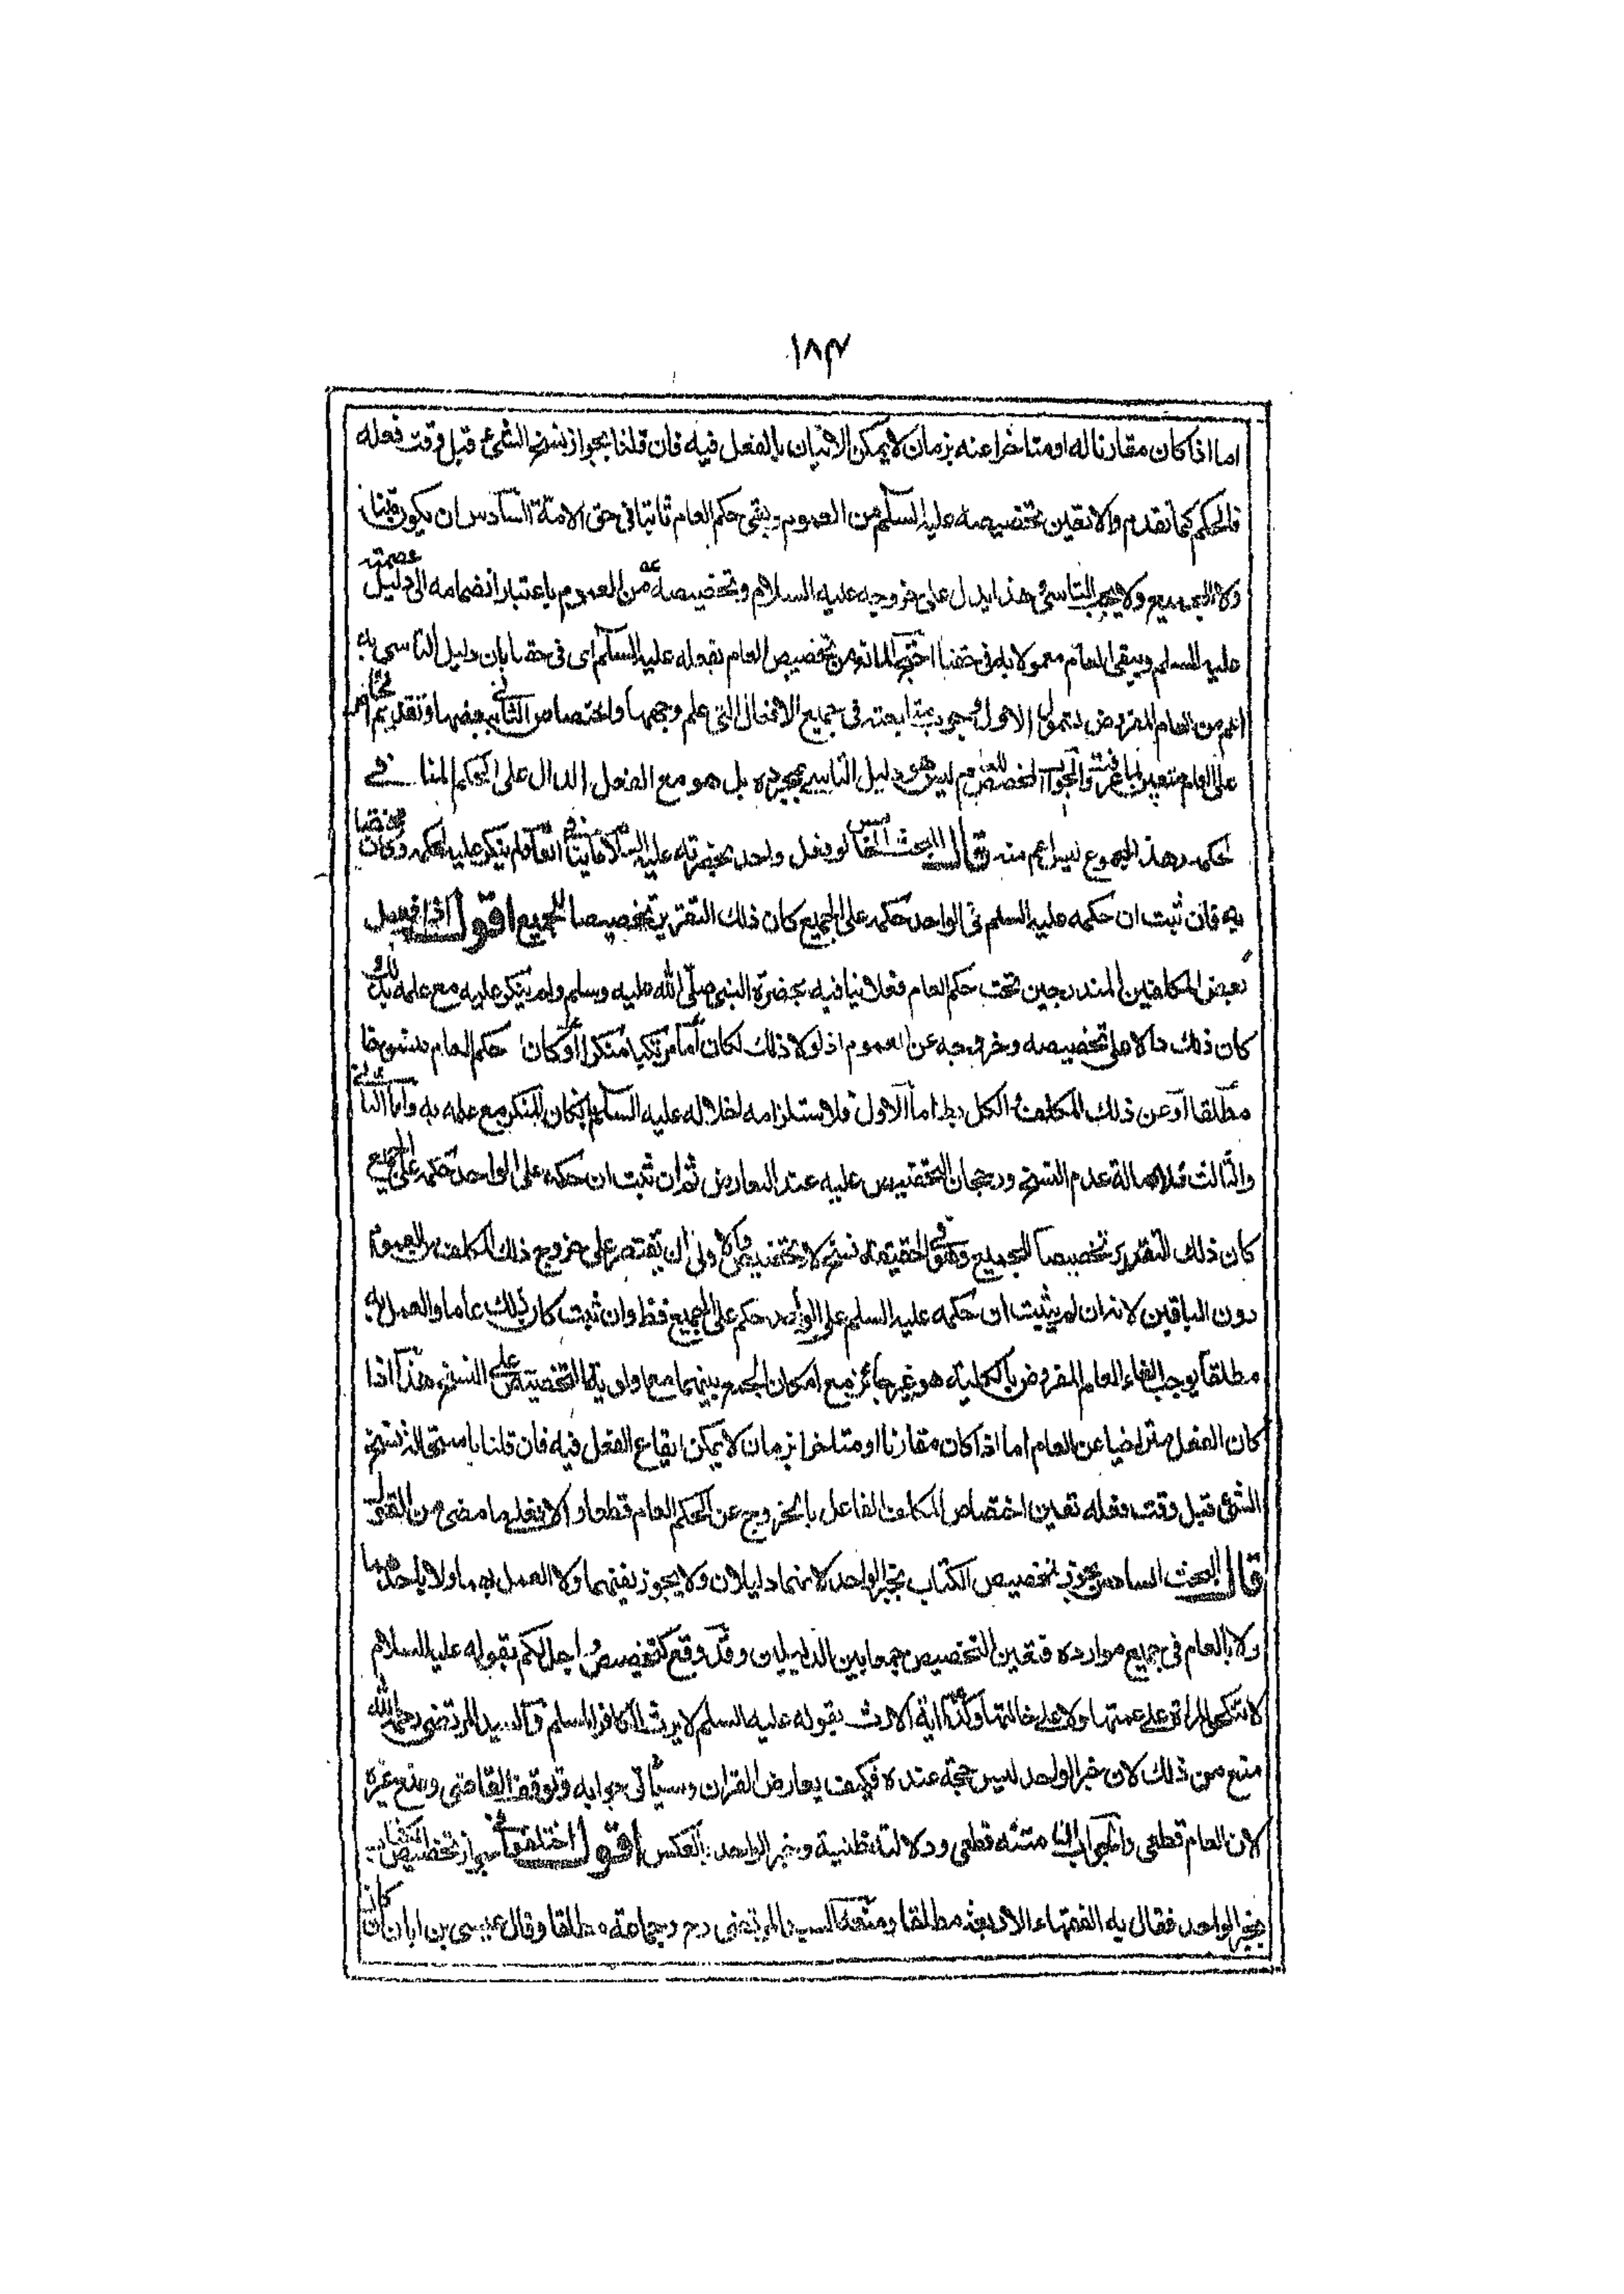 ١٨٣
اما اذا كان مقارنا له او متاخرا عنه بزمان لا يمكن الاتيان بالفعل فيه فان قلنا بجواز نسخ الشئ قبل وقت فعله
فالحكم كما تقدم والا تعين تخصيصه عليه السلم من العموم ويبقى حكم العام ثابتا في حق الامة السادس ان يكون
ولا يجب التاسى هذا يدل على خروجه عليه السلام وتخصيصه من العموم باعتبار انضمامه الى دليل عصمته
عليه السلم ويبقى العام معمولا به في حقنا احتج المانع من تخصيص العام بفعله عليه السلم اى في حقنا بان دليل التاسى به
اعم من العام المفروض لشموله وجوب متابعته في جميع الافعال التى علم وجهها واختصاص الثاني ببعضها وتقديم الخاص
على العام متعين لما عرفت والجواب المخصص للعام ليس هو دليل التاسى بمجرده بل هو مع الفعل الدال على الحكم المنافى
لحكمه وهذا المجموع ليس اعم منه قال البحث الخامس لو فعل واحد بحضرته عليه السلام ما ينافى العام فلم ينكر عليه لحكمه وكان مخصصا
به فان ثبت ان حكمه عليه السلم في الواحد حكمه على الجميع كان ذلك التقرير تخصيصا للجميع اقول اذا فعل
بعض المكلفين المندرجين تحت حكم العام فعلا ينافيه بحضرة النبى صلى الله عليه وسلم ولم ينكر عليه مع علمه بذلك
كان ذلك دالا على تخصيصه وخروجه عن العموم اذ لولا ذلك لكان اما مرتكبا منكرا او كان حكم العام منسوخا
مطلقا او عن ذلك المكلف والكل بط اما الاول فلاستلزامه اخلاله عليه السلم بانكار المنكر مع علمه به واما الثانى
والثالث فلاصالة عدم النسخ ورجحان التخصيص عليه عند التعارض ثم ان ثبت ان حكمه على الواحد حكمه على الجميع
كان ذلك التقرير تخصيصا للجميع وهو في الحقيقة نسخ لا تخصيص والاولى ان يقتصر على خروج ذلك المكلف من العموم
دون الباقين لانه ان لم يثبت ان حكمه عليه السلم على الواحد حكم على الجميع فظ وان ثبت كان ذلك عاما والعمل به
مطلقا يوجب الغاء العام المفروض بالكلية هو غير جائز مع امكان الجمع بينهما مع اولوية التخصيص على النسخ هذا اذا
كان الفعل متراخيا عن العام اما اذا كان مقارنا او متاخرا بزمان لا يمكن ايقاع الفعل فيه فان قلنا باستحالة نسخ
الشئ قبل وقت فعله تعين اختصاص المكلف الفاعل بالخروج عن الحكم العام قطعا والا فعلى ما مضى من القول
قال البحث السادس يجوز تخصيص الكتاب بخبر الواحد لانهما دليلان ولا يجوز نفيهما ولا العمل بهما ولا باحدهما
ولا بالعام في جميع موارده فتعين التخصيص جمعا بين الدليلين وقد وقع كتخصيص واحل لكم بقوله عليه السلام
لا تنكح المراة على عمتها ولا على خالتها وكذا اية الارث بقوله عليه السلم لا يرث الكافر المسلم قال السيد المرتضى رحمه الله
منع من ذلك لان خبر الواحد ليس حجة عنده فكيف يعارض القران وسياتى جوابه وتوقف القاضى ومنع غيره
لان العام قطعى والجواب ان متنه قطعى ودلالته ظنية وخبر الواحد بالعكس اقول اختلفوا في جواز تخصيص الكتاب
بخبر الواحد فقال به الفقهاء الاربعة مطلقا ومنعه السيد المرتضى رح وجماعة مطلقا وقال عيسى بن ابان ان كان